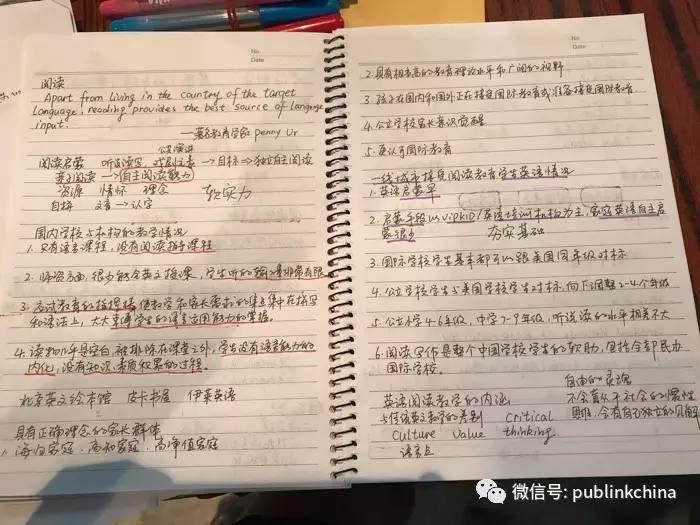 阅读
Apart from living in the country of the target
language, reading provides the best source of language
input.
——著名教育学家 Penny Ur
公众演讲
阅读启蒙 听说读写，戏剧性素 → 目标 → 独立自主阅读
英文阅读 → 自主阅读能力
资源 情怀 理念 软实力
自拼 文音 → 认字
国内学校与机构的教学情况
1. 只有语言课程，没有阅读指导课程
2. 师资方面，很少能全英文授课，学生听的输入量非常有限
3. 应试教育的指挥棒使教学和家长需求的焦点集中在核写
和语法上，大大束缚学生的语言运用能力的掌握。
4. 读物几乎是空白 被排除在课堂之外，学生没有语言能力的
内化，没有知识、素质积累的过程。
北京英文绘本馆 皮卡书屋 伊莱英语
具有正确理念的家长群体
1. 海归家庭、高知家庭、高净值家庭
No.
Date
2. 具有相当高的教育理论水平和广阔的视野
3. 孩子在国内和国外正在接受国际教育或准备接受国际教育
4. 公立学校家长意识觉醒
5. 更认可国际教育
一线城市接受阅读教育学生英语情况
1. 英语启蒙早
2. 启蒙手段以VIPKID/英语培训机构为主，家庭英语自主启
蒙很少 夯实基础
3. 国际学校学生基本都可以跟美国同年级对标
4. 公立学校学生与美国学校学生对标，向下调整2-4个年级
5. 公立小学4-6年级，中学7-9年级，听说读的水平相差不大
6. 阅读写作是整个中国学校学生的软肋，包括全部民办
国际学校。
自由的灵魂
英语阅读教学的内涵 不会盲从于社会的惯性
与传统英文教学的差别 Critical 思维，会有自己独立的见解
Culture Value thinking
语言点
No.
Date
微信号: publinkchina